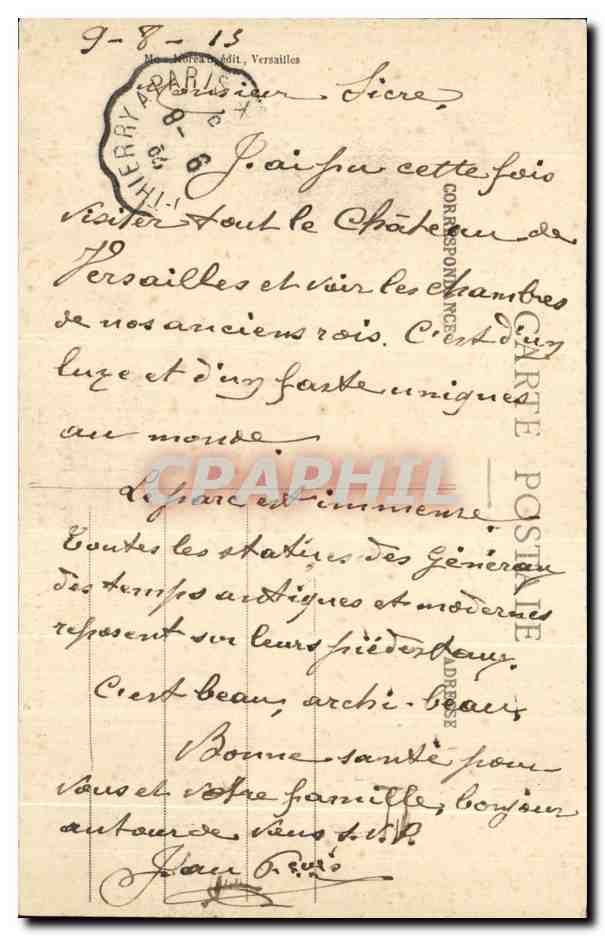 9-8-13
édit, Versailles
Monsieur Sicre,
THIERRY A PARIS
J'ai pu cette fois
visiter tout le Château de
Versailles et voir les chambres
de nos anciens rois. C'est d'un
luxe et d'un faste uniques
au monde.
CPAPHIL
Le parc est immense.
Toutes les statues des Généraux
des temps antiques et modernes
reposent sur leurs piédestaux.
C'est beau, archi-beau,
Bonne santé pour
vous et votre famille, bonjour
autour de vous s.v.p.
Jean
CARTE POSTALE
CORRESPONDANCE
ADRESSE